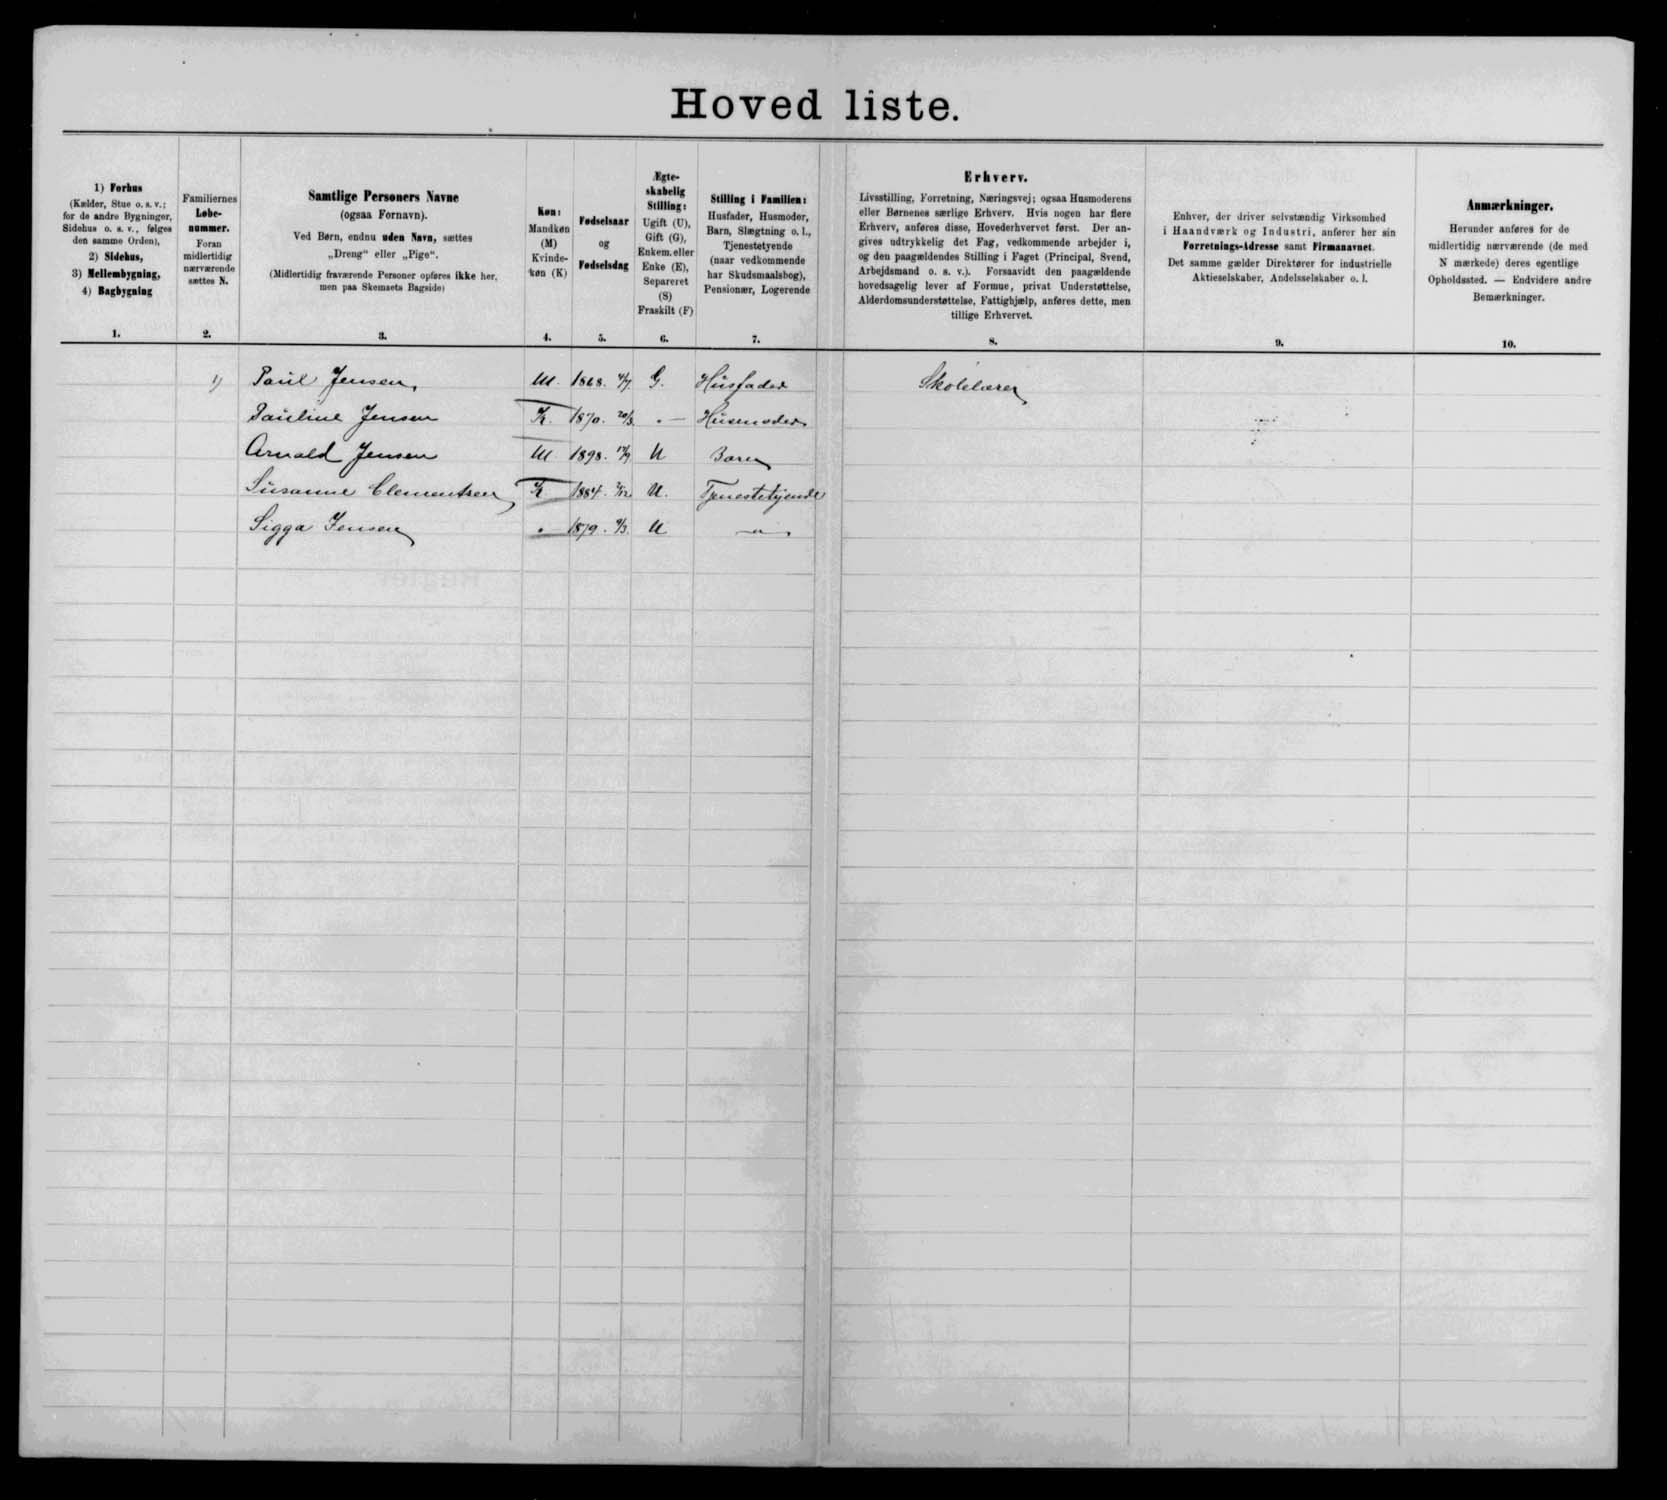 Hoved liste.
1) Forhus
(Kælder, Stue o. s. v.;
for de andre Bygninger,
Sidehus o. s. v., følges
den samme Orden),
2) Sidehus,
3) Mellembygning,
4) Bagbygning
1.
Familiernes
Løbe-
nummer.
Foran
midlertidig
nærværende
sættes N.
2.
Samtlige Personers Navne
(ogsaa Fornavn).
Ved Børn, endnu uden Navn, sættes
„Dreng“ eller „Pige“.
(Midlertidig fraværende Personer opføres ikke her,
men paa Skemaets Bagside)
3.
Køn:
Mandkøn
(M)
Kvinde-
køn (K)
4.
Fødselsaar
og
Fødselsdag
5.
Ægte-
skabelig
Stilling:
Ugift (U),
Gift (G),
Enkem. eller
Enke (E),
Separeret
(S)
Fraskilt (F)
6.
Stilling i Familien:
Husfader, Husmoder,
Barn, Slægtning o. l.,
Tjenestetyende
(naar vedkommende
har Skudsmaalsbog),
Pensionær, Logerende
7.
Erhverv.
Livsstilling, Forretning, Næringsvej; ogsaa Husmoderens
eller Børnenes særlige Erhverv. Hvis nogen har flere
Erhverv, anføres disse, Hovederhvervet først. Der an-
gives udtrykkelig det Fag, vedkommende arbejder i,
og den paagældendes Stilling i Faget (Principal, Svend,
Arbejdsmand o. s. v.). Forsaavidt den paagældende
hovedsagelig lever af Formue, privat Understøttelse,
Alderdomsunderstøttelse, Fattighjælp, anføres dette, men
tillige Erhvervet.
8.
Enhver, der driver selvstændig Virksomhed
i Haandværk og Industri, anfører her sin
Forretnings-Adresse samt Firmanavnet.
Det samme gælder Direktører for industrielle
Aktieselskaber, Andelsselskaber o. l.
9.
Anmærkninger.
Herunder anføres for de
midlertidig nærværende (de med
N mærkede) deres egentlige
Opholdssted. — Endvidere andre
Bemærkninger.
10.
1) Paul Jensen, M. 1868. 4/7. G. Husfader Skolelærer
Pauline Jensen K. 1870. 20/3. „ — Husmoder
Arnold Jensen M 1898. 17/9 U Barn
Susanne Clementsen K 1884. 2/12 U. Tjenestetyende
Sigga Jensen „ 1879. 9/3. U — „ —